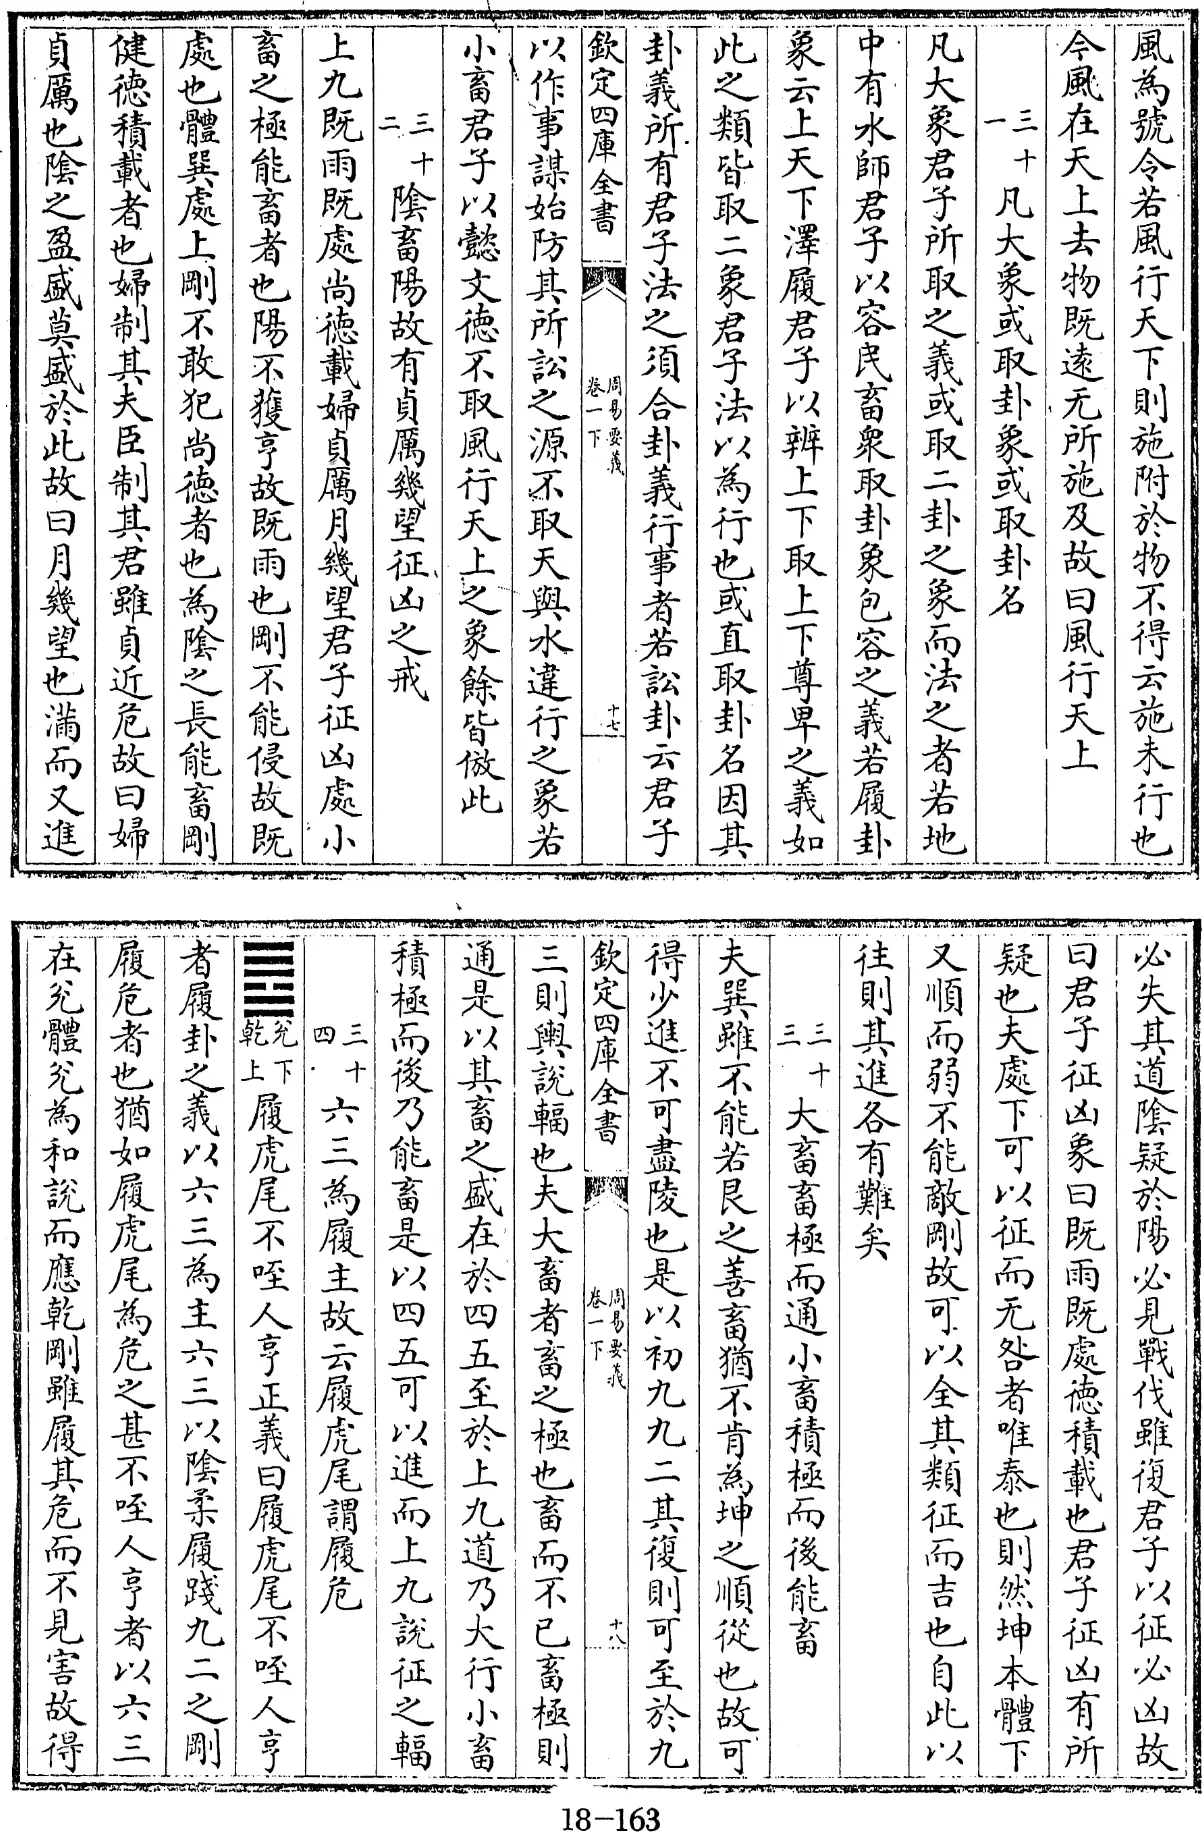 風為號令若風行天下則施附於物不得云施未行也
今風在天上去物既遠无所施及故曰風行天上
三十一 凡大象或取卦象或取卦名
凡大象君子所取之義或取二卦之象而法之者若地
中有水師君子以容民畜衆取卦象包容之義若履卦
象云上天下澤履君子以辨上下取上下尊卑之義如
此之類皆取二象君子法以為行也或直取卦名因其
卦義所有君子法之須合卦義行事者若訟卦云君子
欽定四庫全書 周易要義 卷一下 十七
以作事謀始防其所訟之源不取天與水違行之象若
小畜君子以懿文德不取風行天上之象餘皆倣此
三十二 陰畜陽故有貞厲幾望征凶之戒
上九既雨既處尚德載婦貞厲月幾望君子征凶處小
畜之極能畜者也陽不獲亨故既雨也剛不能侵故既
處也體巽處上剛不敢犯尚德者也為陰之長能畜剛
健德積載者也婦制其夫臣制其君雖貞近危故曰婦
貞厲也陰之盈盛莫盛於此故曰月幾望也滿而又進
必失其道陰疑於陽必見戰伐雖復君子以征必凶故
曰君子征凶象曰既雨既處德積載也君子征凶有所
疑也夫處下可以征而无咎者唯泰也則然坤本體下
又順而弱不能敵剛故可以全其類征而吉也自此以
往則其進各有難矣
三十三 大畜畜極而通小畜積極而後能畜
夫巽雖不能若艮之善畜猶不肯為坤之順從也故可
得少進不可盡陵也是以初九九二其復則可至於九
欽定四庫全書 周易要義 卷一下 十八
三則輿說輻也夫大畜者畜之極也畜而不已畜極則
通是以其畜之盛在於四五至於上九道乃大行小畜
積極而後乃能畜是以四五可以進而上九說征之輻
三十四 六三為履主故云履虎尾謂履危
䷉ 兊下乾上 履虎尾不咥人亨正義曰履虎尾不咥人亨
者履卦之義以六三為主六三以陰柔履踐九二之剛
履危者也猶如履虎尾為危之甚不咥人亨者以六三
在兊體兊為和說而應乾剛雖履其危而不見害故得
18-163